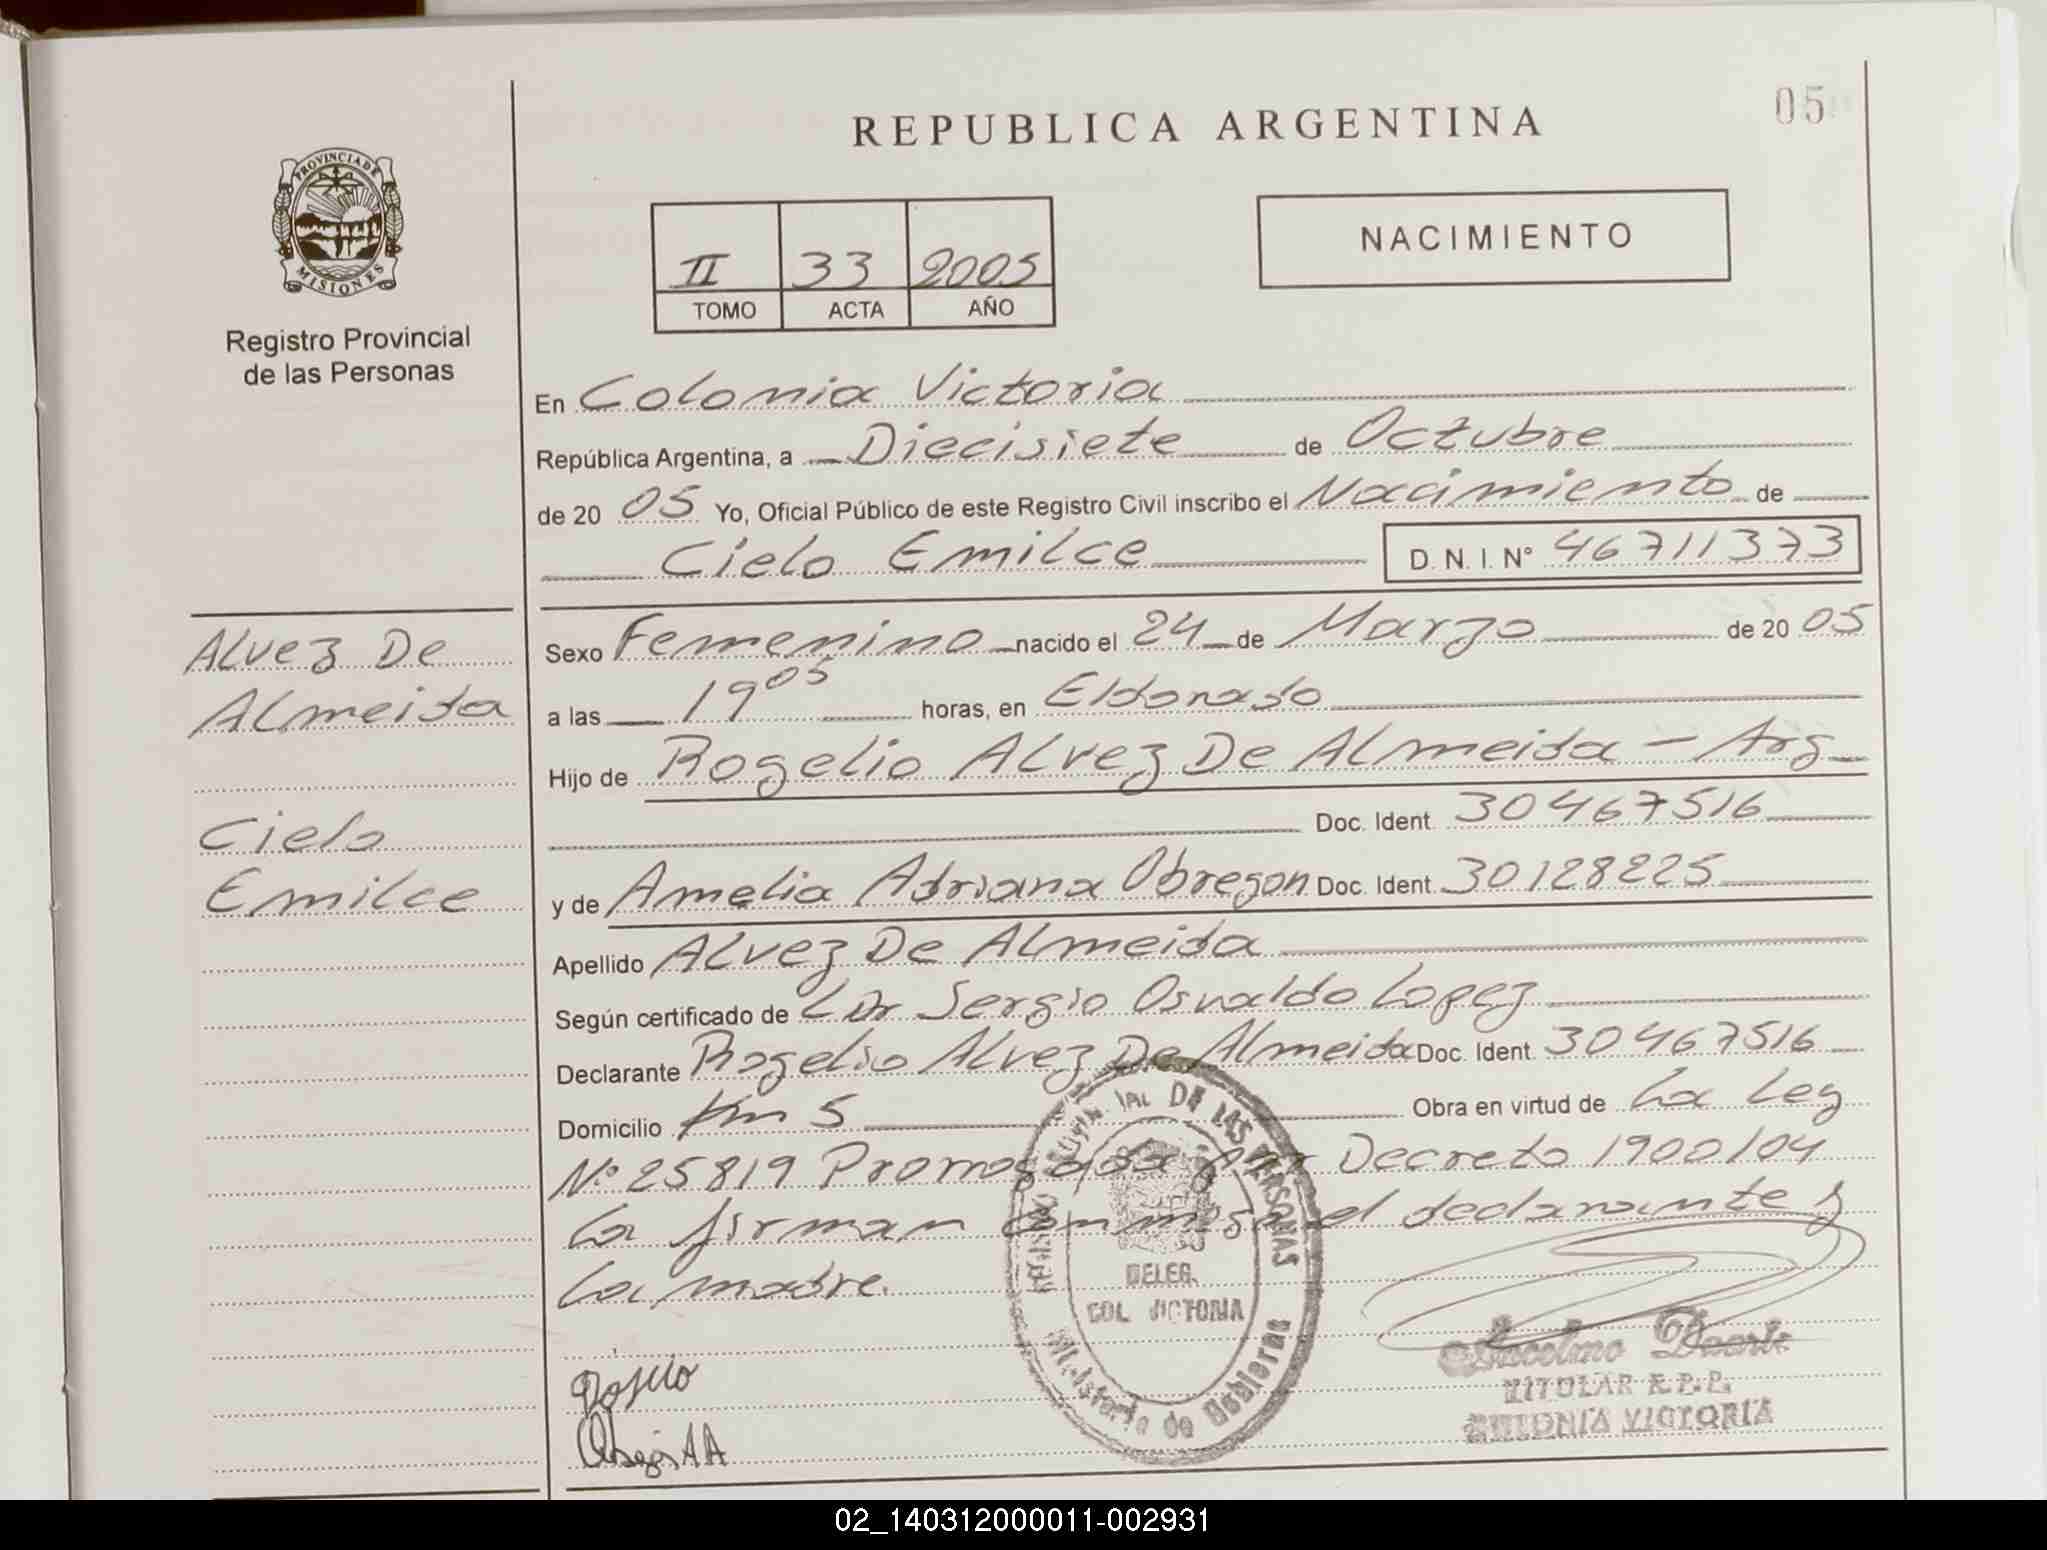 REPUBLICA ARGENTINA
05
PROVINCIA DE
MISIONES
Registro Provincial
de las Personas
II 33 2005
TOMO ACTA AÑO
NACIMIENTO
En Colonia Victoria
República Argentina, a Diecisiete de Octubre
de 20 05 Yo, Oficial Público de este Registro Civil inscribo el Nacimiento de
Cielo Emilce D. N. I. N° 46711373
Alvez De
Almeida
Cielo
Emilce
Sexo Femenino nacido el 24 de Marzo de 20 05
a las 19 05 horas, en Eldorado
Hijo de Rogelio Alvez De Almeida - Arg
Doc. Ident. 30467516
y de Amelia Adriana Obregon Doc. Ident. 30128225
Apellido Alvez De Almeida
Según certificado de Dr Sergio Osvaldo Lopez
Declarante Rogelio Alvez De Almeida Doc. Ident. 30467516
Domicilio Km 5 Obra en virtud de La Ley
N° 25819 Promogada por Decreto 1900/04
La firman conmigo el declarante y
La madre.
DE LAS PERSONAS
DELEG.
COL. VICTORIA
Ministerio de Gobierno
Rogelio
Duarte
TITULAR R.P.P.
COLONIA VICTORIA
02_140312000011-002931